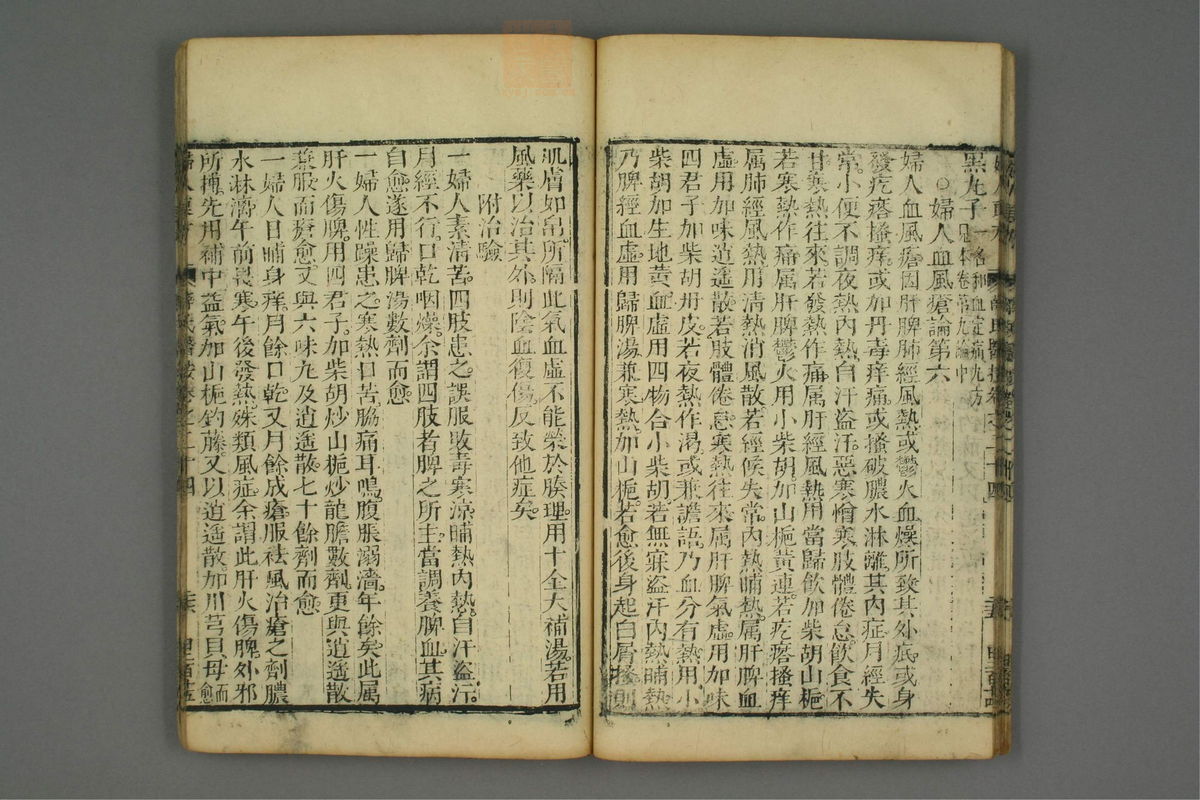 黑丸子一名和血定痛丸方見本卷第九論中
○婦人血風瘡論第六
婦人血風瘡因肝脾肺經風熱或鬱火血燥所致其外疵或身
發疙瘩搔痒或如丹毒痒痛或搔破膿水淋漓其內症月經失
常小便不調夜熱內熱自汗盜汗惡寒憎寒肢體倦怠飲食不
甘寒熱往來若發熱作痛属肝經風熱用當歸飲加柴胡山梔
若寒熱作痛属肝脾鬱火用小柴胡加山梔黃連若疙瘩搔痒
属肺經風熱用清熱消風散若經候失常內熱晡熱属肝脾血
虛用加味逍遙散若肢體倦怠寒熱往來属肝脾氣虛用加味
四君子加柴胡丹皮若夜熱作渴或兼譫語乃血分有熱用小
柴胡加生地黃血虛用四物合小柴胡若無寐盜汗內熱晡熱
乃脾經血虛用歸脾湯兼寒熱加山梔若愈後身起白屑搔則
肌膚如帛所隔此氣血虛不能榮於腠理用十全大補湯若用
風藥以治其外則陰血復傷反致他症矣
附治驗
一婦人素清苦四肢患之誤服敗毒寒涼晡熱內熱自汗盜汗
月經不行口乾咽燥余謂四肢者脾之所主當調養脾血其病
自愈遂用歸脾湯數劑而愈
一婦人性躁患之寒熱口苦脇痛耳鳴腹脹溺濇年餘矣此属
肝火傷脾用四君子加柴胡炒山梔炒龍膽數劑更與逍遙散
兼服而瘡愈又與六味丸及逍遙散七十餘劑而愈
一婦人日晡身痒月餘口乾又月餘成瘡服祛風治瘡之劑膿
水淋漓午前畏寒午後發熱殊類風症余謂此肝火傷脾外邪
所搏先用補中益氣加山梔釣藤又以逍遙散加川芎貝母而愈